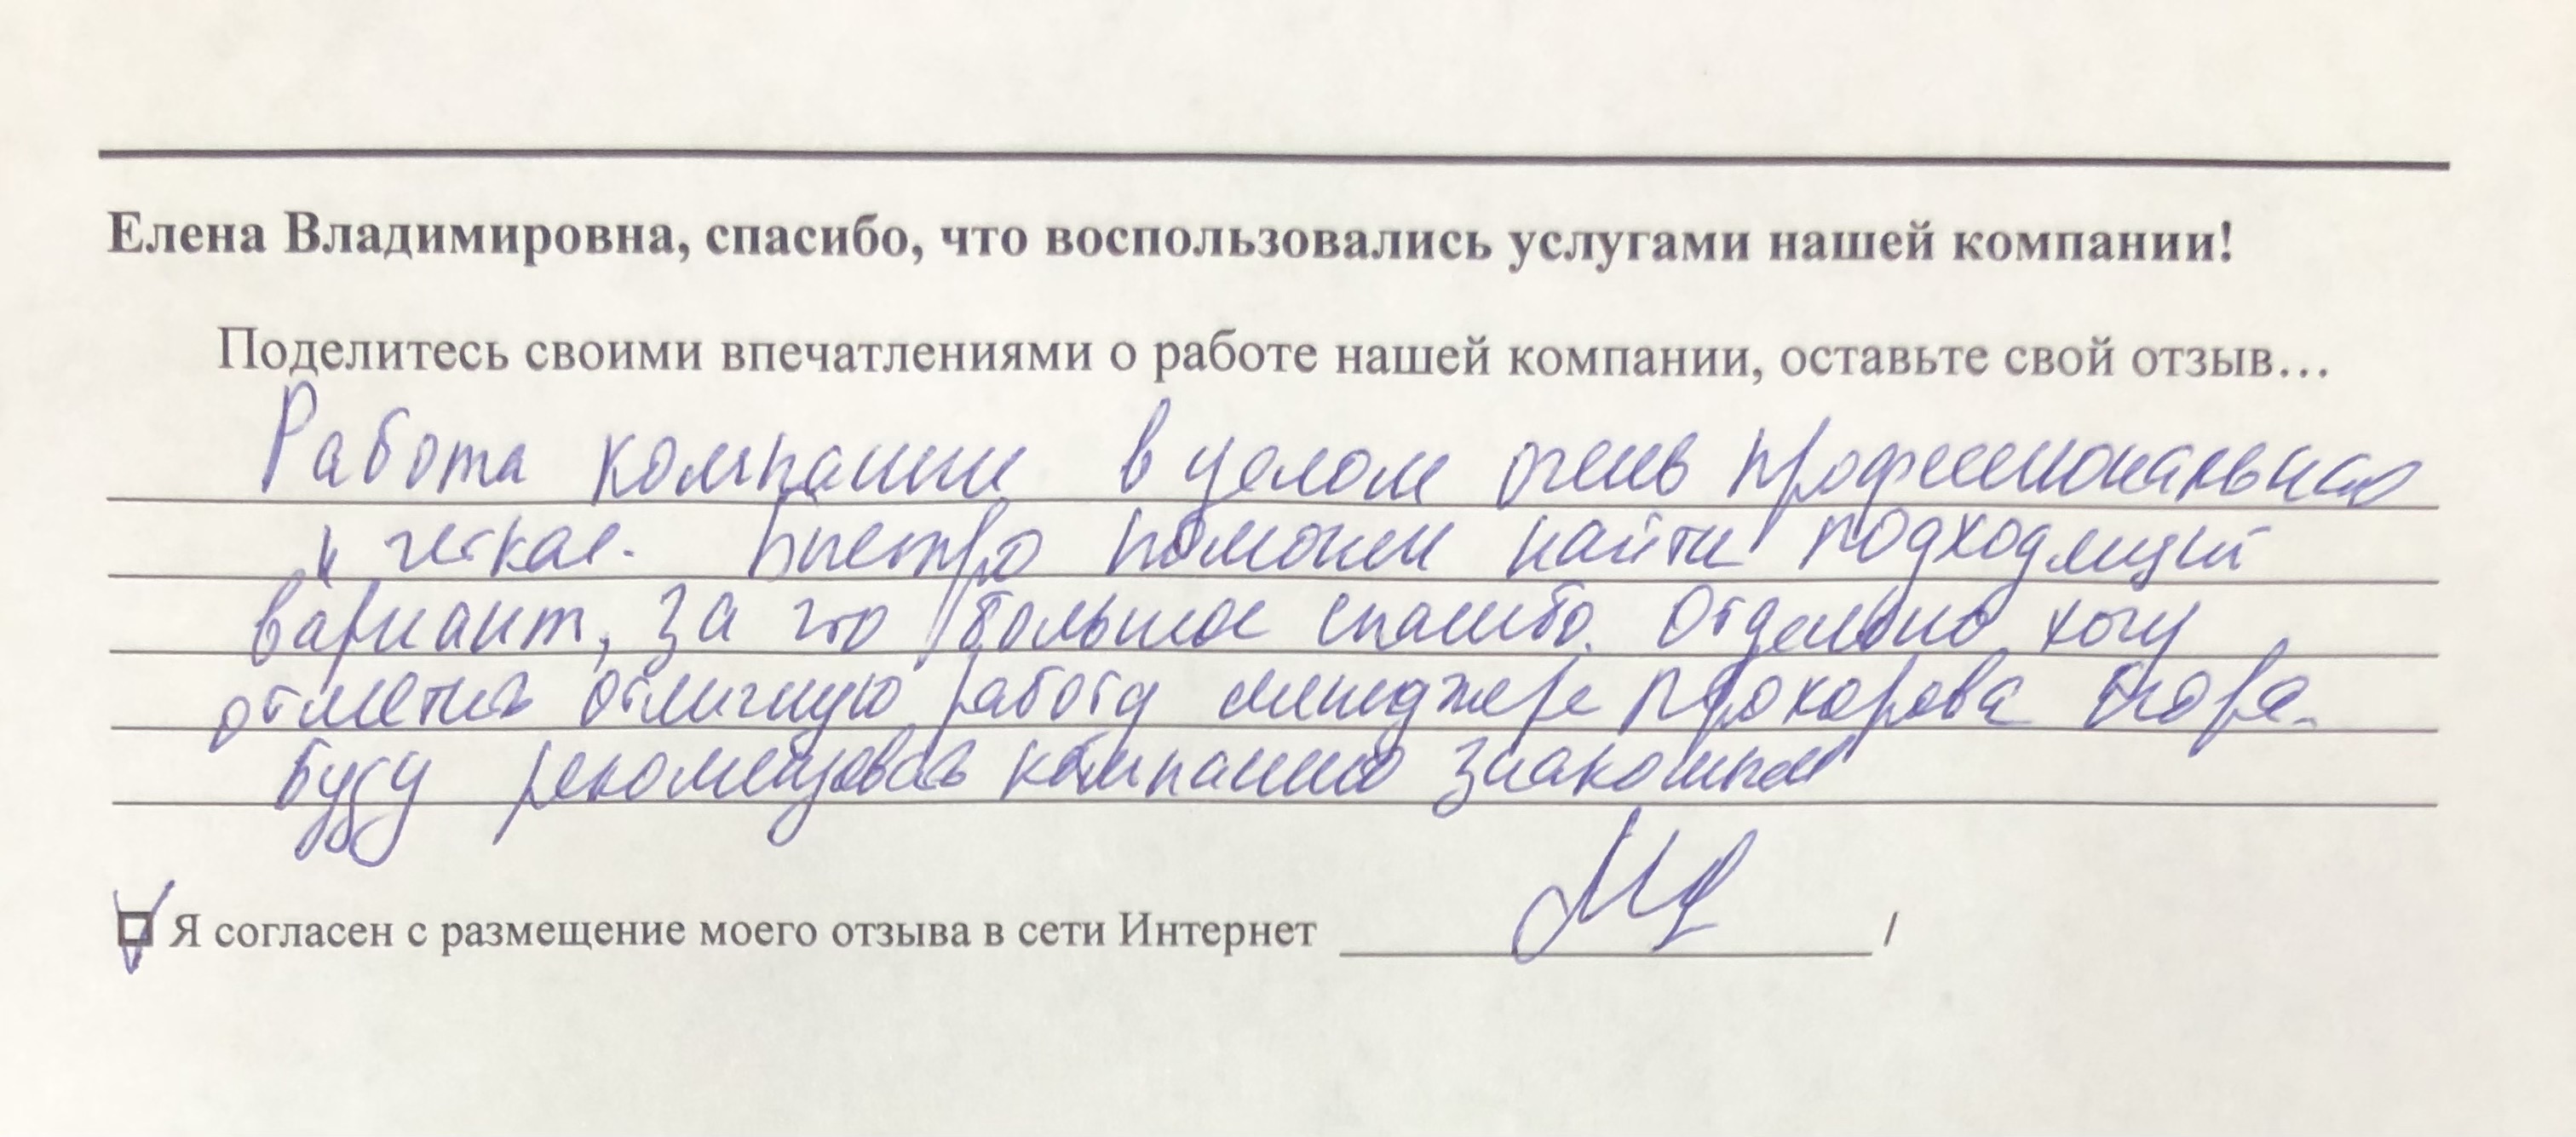 Елена Владимировна, спасибо, что воспользовались услугами нашей компании!
Поделитесь своими впечатлениями о работе нашей компании, оставьте свой отзыв...
Работа компании в целом очень профессиональная
и четкая. Быстро помогли найти подходящий
вариант, за что большое спасибо. Отдельно хочу
отметить отличную работу менеджера Прохорова Егора.
Буду рекомендовать компанию знакомым
Я согласен с размещение моего отзыва в сети Интернет /